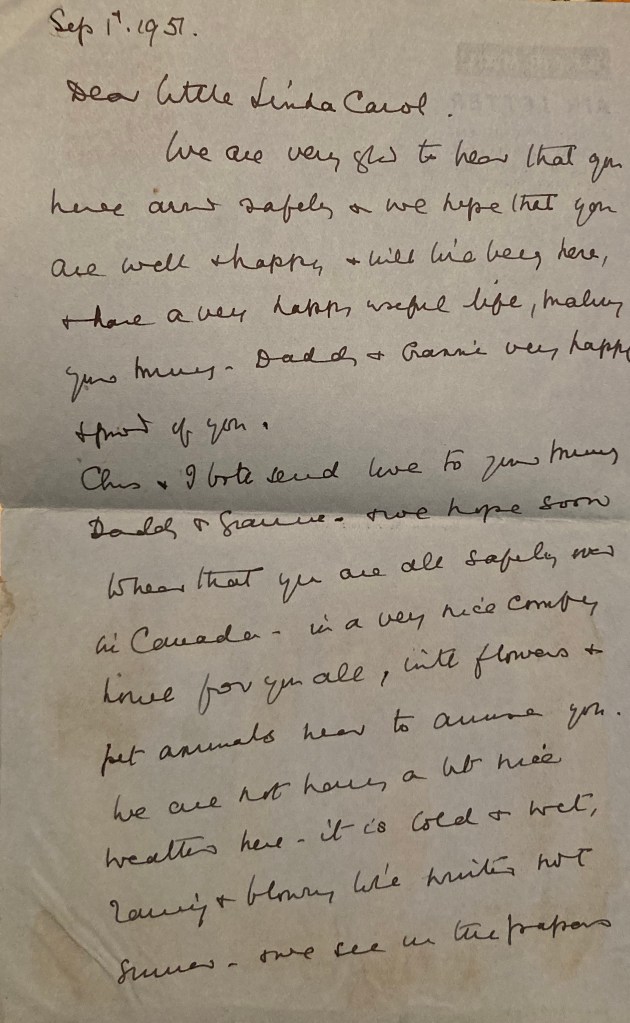 Sep 1st. 1951.
Dear little Linda Carol.
We are very glad to hear that you
have arrived safely & we hope that you
are well & happy & will like being here,
& have a very happy useful life, making
your Mummy - Daddy & Grannie very happy
& proud of you.
Chris & I both send love to your Mummy
Daddy & Grannie - & we hope soon
to hear that you are all safely over
in Canada - in a very nice comfy
house for you all, with flowers &
pet animals near to amuse you.
We are not having a bit nice
weather here - it is cold & wet,
raining & blowing like winter not
summer - & we see in the papers